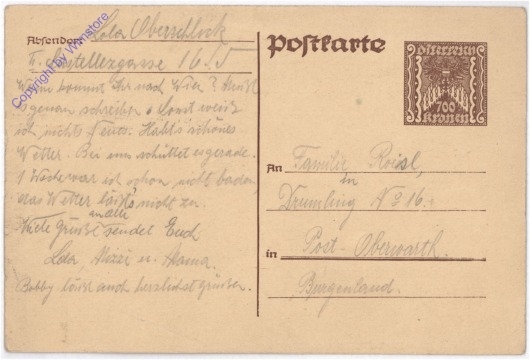 Absender: Lola Oberschlock
II. Castellezgasse 16/5
Wann kommt Ihr nach Wien? Müßt
genau schreiben. Sonst weiß
ich nichts Neues. Habt's schönes
Wetter. Bei uns schüttet es gerade.
1 Woche war ich schon nicht baden,
das Wetter läßt's nicht zu.
Viele Grüße an alle sendet Euch
Lola, Mizzi u. Mama.
Bobby läßt auch herzlichst grüßen.
Postkarte
Österreich
700
Kronen
An Familie Roisl,
in
Drumling No 16.
in Post-Oberwarth.
Burgenland.
Copyright by Wnstore